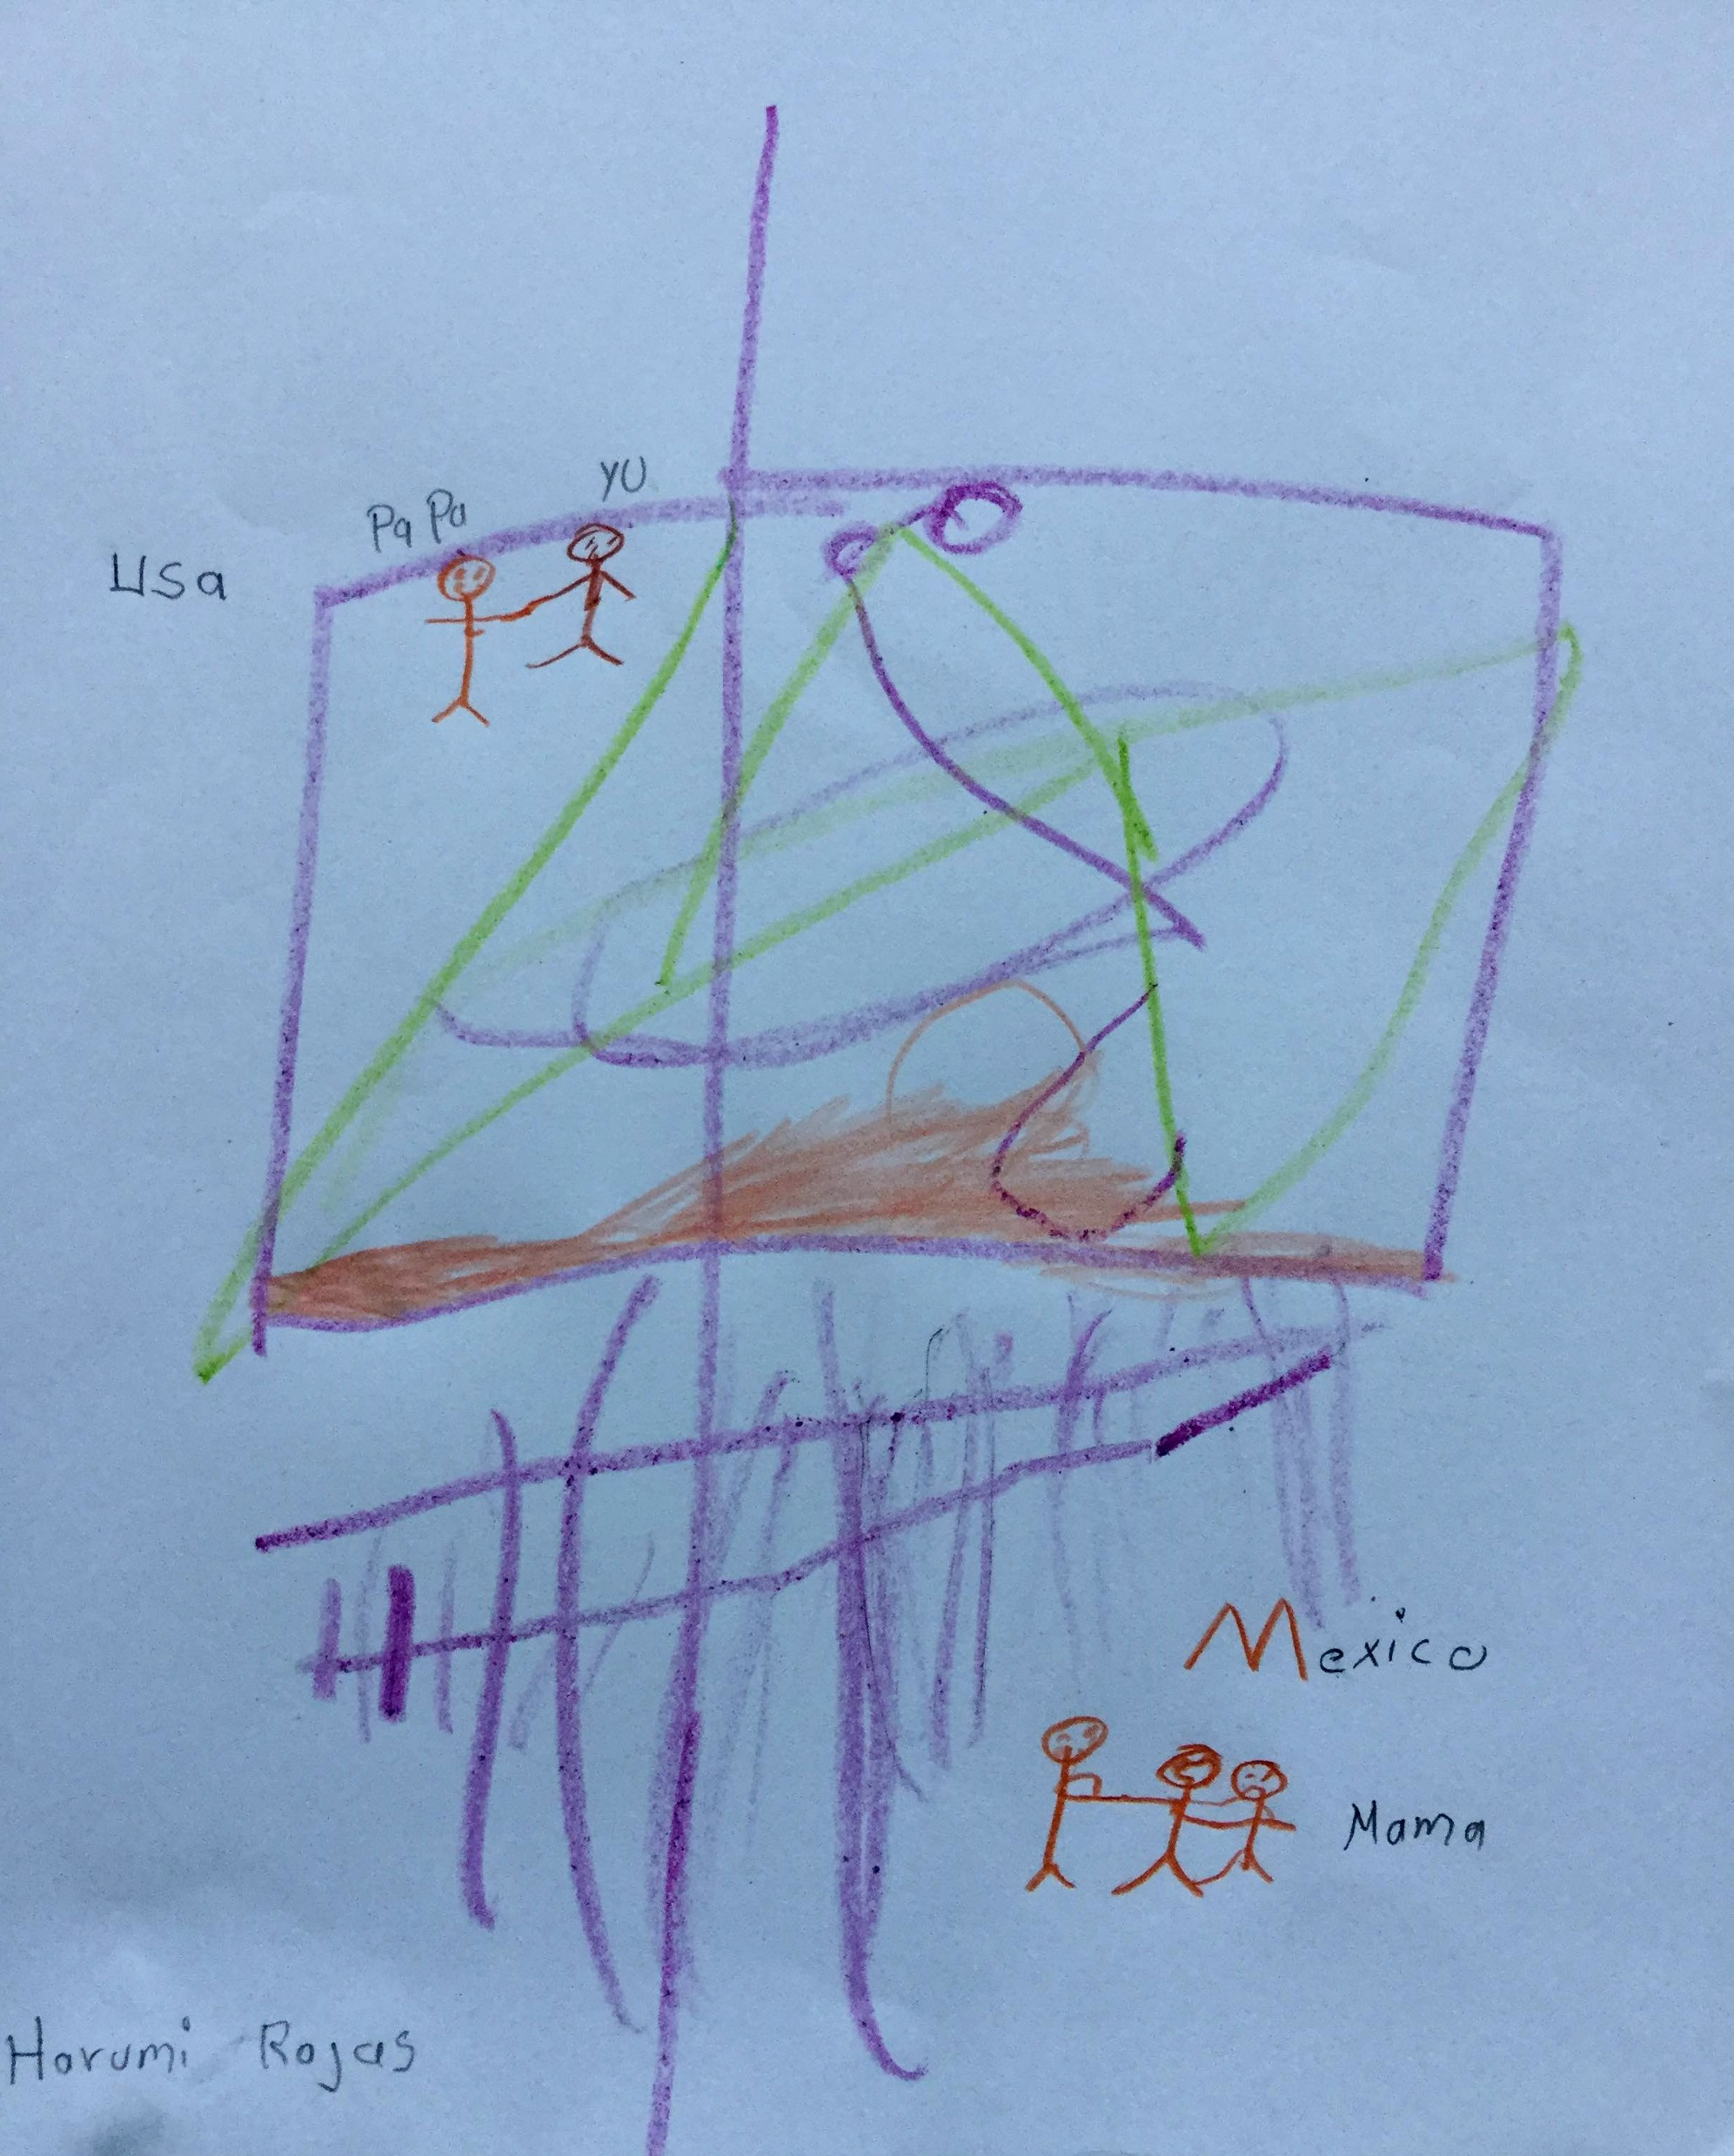 YU
Papa
Usa
Mexico
Mama
Harumi Rojas